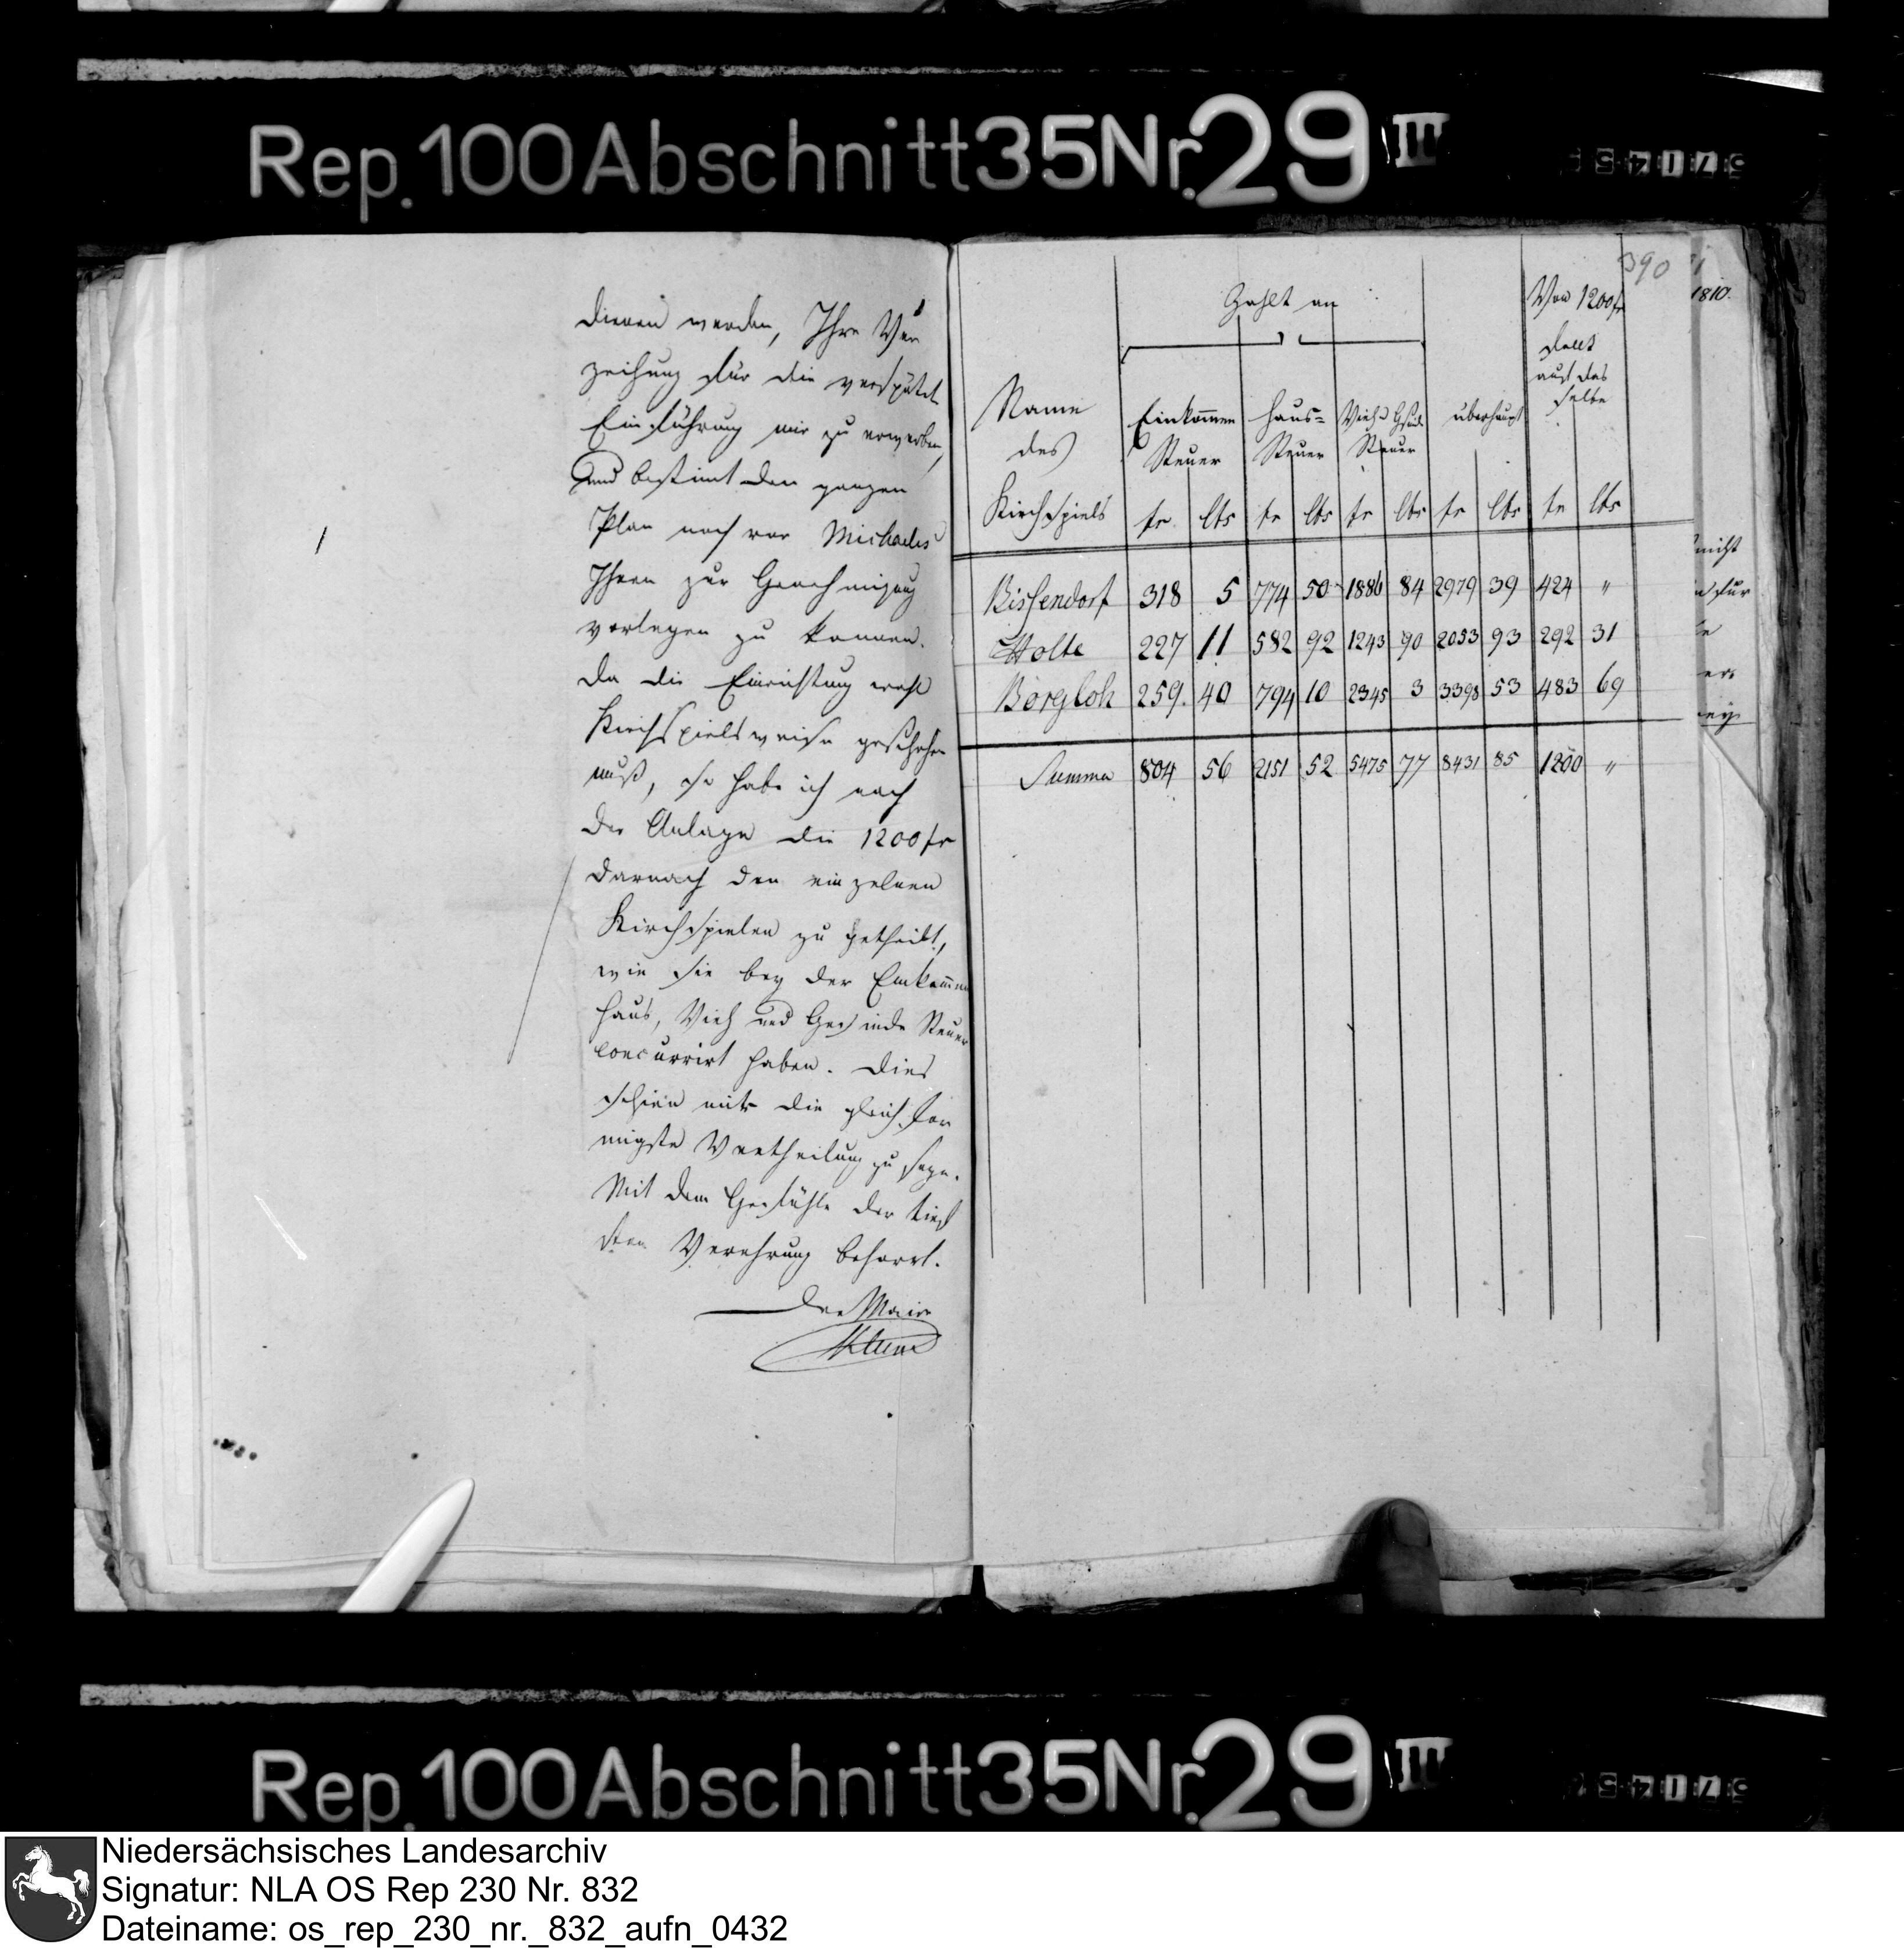 Rep. 100 Abschnitt 35 Nr. 29 III
dienen werden, Ihre Ver
zeihung für die verspätete
Einführung mir zu erwerben,
und bestimt den ganzen
Plan noch vor Michaelis
Ihnen zur Genehmigung
vorlegen zu können.
Da die Einrichtung wohl
Kirchspielsweise geschehen
muß, so habe ich nach
der Anlage die 1200 fr
darnach den einzelnen
Kirchspielen zu getheilt,
wie sie bey der Einkommen
Haus, Vieh und Gesinde Steuer
concurrirt haben. Dies
schien mir die gleich för
migste Vertheilung zu seyn.
Mit dem Gefühle der tief
sten Verehrung beharrt.
Der Maire
390
1810.
Name des Kirchspiels
Zahlt an
Einkommen Steuer
Haus= Steuer
Vieh u Gesinde Steuer
überhaupt
Von 1200 fr
fällt
auf das
selbe
fr. cts fr cts fr cts fr cts fr cts
Bissendorf 318 5 774 50 1886 84 2979 39 424 "
Holte 227 11 582 92 1243 90 2053 93 292 31
Borgloh 259. 40 794 10 2345 3 3398 53 483 69
Summa 804 56 2151 52 5475 77 8431 85 1200 "
Rep. 100 Abschnitt 35 Nr. 29 III
Niedersächsisches Landesarchiv
Signatur: NLA OS Rep 230 Nr. 832
Dateiname: os_rep_230_nr._832_aufn_0432